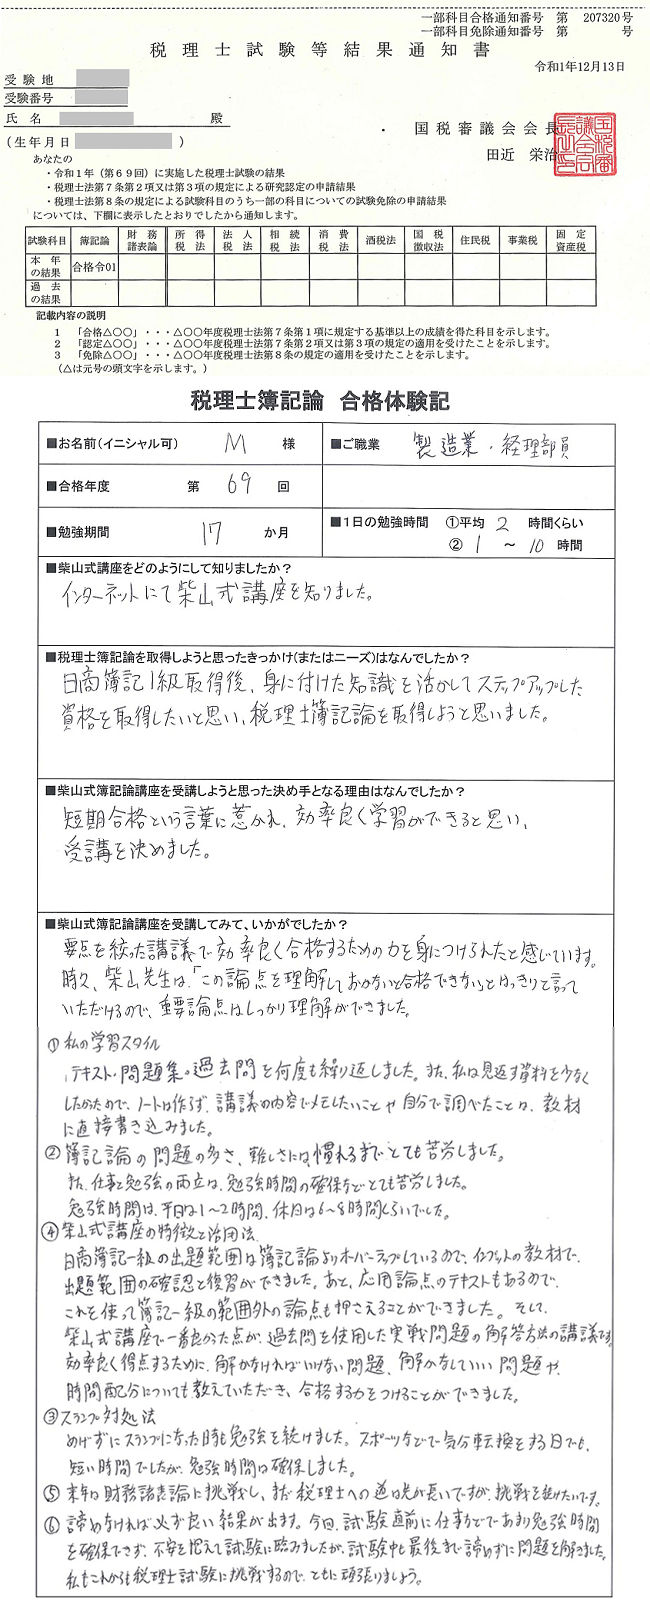 一部科目合格通知番号 第 207320号
一部科目免除通知番号 第 号
税理士試験等結果通知書
令和1年12月13日
受験地
受験番号
氏名 殿
(生年月日 )
国税審議会会長
田近 栄治
国税審議会会長之印
あなたの
・令和1年(第69回)に実施した税理士試験の結果
・税理士法第7条第2項又は第3項の規定による研究認定の申請結果
・税理士法第8条の規定による試験科目のうち一部の科目についての試験免除の申請結果
については、下欄に表示したとおりでしたから通知します。
試験科目 簿記論 財務諸表論 所得税法 法人税法 相続税法 消費税法 酒税法 国税徴収法 住民税 事業税 固定資産税
本年の結果 合格令01
過去の結果
記載内容の説明
1 「合格△○○」・・・△○○年度税理士法第7条第1項に規定する基準以上の成績を得た科目を示します。
2 「認定△○○」・・・△○○年度税理士法第7条第2項又は第3項の規定の適用を受けたことを示します。
3 「免除△○○」・・・△○○年度税理士法第8条の規定の適用を受けたことを示します。
(△は元号の頭文字を示します。)
税理士簿記論 合格体験記
■お名前(イニシャル可) M 様
■ご職業 製造業・経理部員
■合格年度 第 69 回
■勉強期間 17 か月
■1日の勉強時間 ①平均 2 時間くらい
② 1 ~ 10 時間
■柴山式講座をどのようにして知りましたか?
インターネットにて柴山式講座を知りました。
■税理士簿記論を取得しようと思ったきっかけ(またはニーズ)はなんでしたか?
日商簿記1級取得後、身に付けた知識を活かしてステップアップした
資格を取得したいと思い、税理士簿記論を取得しようと思いました。
■柴山式簿記論講座を受講しようと思った決め手となる理由はなんでしたか?
短期合格という言葉に惹かれ、効率良く学習ができると思い、
受講を決めました。
■柴山式簿記論講座を受講してみて、いかがでしたか?
要点を絞った講義で効率良く合格するための力を身につけられたと感じています。
時々、柴山先生は、「この論点を理解しておかないと合格できない」とはっきりと言って
いただけるので、重要論点はしっかり理解ができました。
①私の学習スタイル
テキスト・問題集・過去問を何度も繰り返しました。また、私は見返す資料を少なく
したかったので、ノートは作らず、講義の内容でメモしたいことや自分で調べたことは、教材
に直接書き込みました。
②簿記論の問題の多さ、難しさには慣れるまでとても苦労しました。
また、仕事と勉強の両立は、勉強時間の確保などとても苦労しました。
勉強時間は、平日は1~2時間、休日は6~8時間くらいでした。
④柴山式講座の特徴と活用法
日商簿記一級の出題範囲は簿記論よりオーバーラップしているので、インプットの教材で、
出題範囲の確認と復習ができました。あと、応用論点のテキストもあるので、
これを使って簿記一級の範囲外の論点も押さえることができました。そして、
柴山式講座で一番良かった点が、過去問を使用した実戦問題の解答方法の講義です。
効率良く得点するために、解かなければいけない問題、解かなくていい問題や、
時間配分についても教えていただき、合格する力をつけることができました。
③スランプ対処法
めげずにスランプになった時も勉強を続けました。スポーツなどで気分転換をする日でも、
短い時間でしたが、勉強時間は確保しました。
⑤来年は財務諸表論に挑戦し、まだ税理士への道は先が長いですが、挑戦を続けたいです。
⑥諦めなければ必ず良い結果が出ます。今回、試験直前に仕事などであまり勉強時間
を確保できず、不安を抱えて試験に臨みましたが、試験中も最後まで諦めずに問題を解きました。
私もこれからも税理士試験に挑戦するので、ともに頑張りましょう。